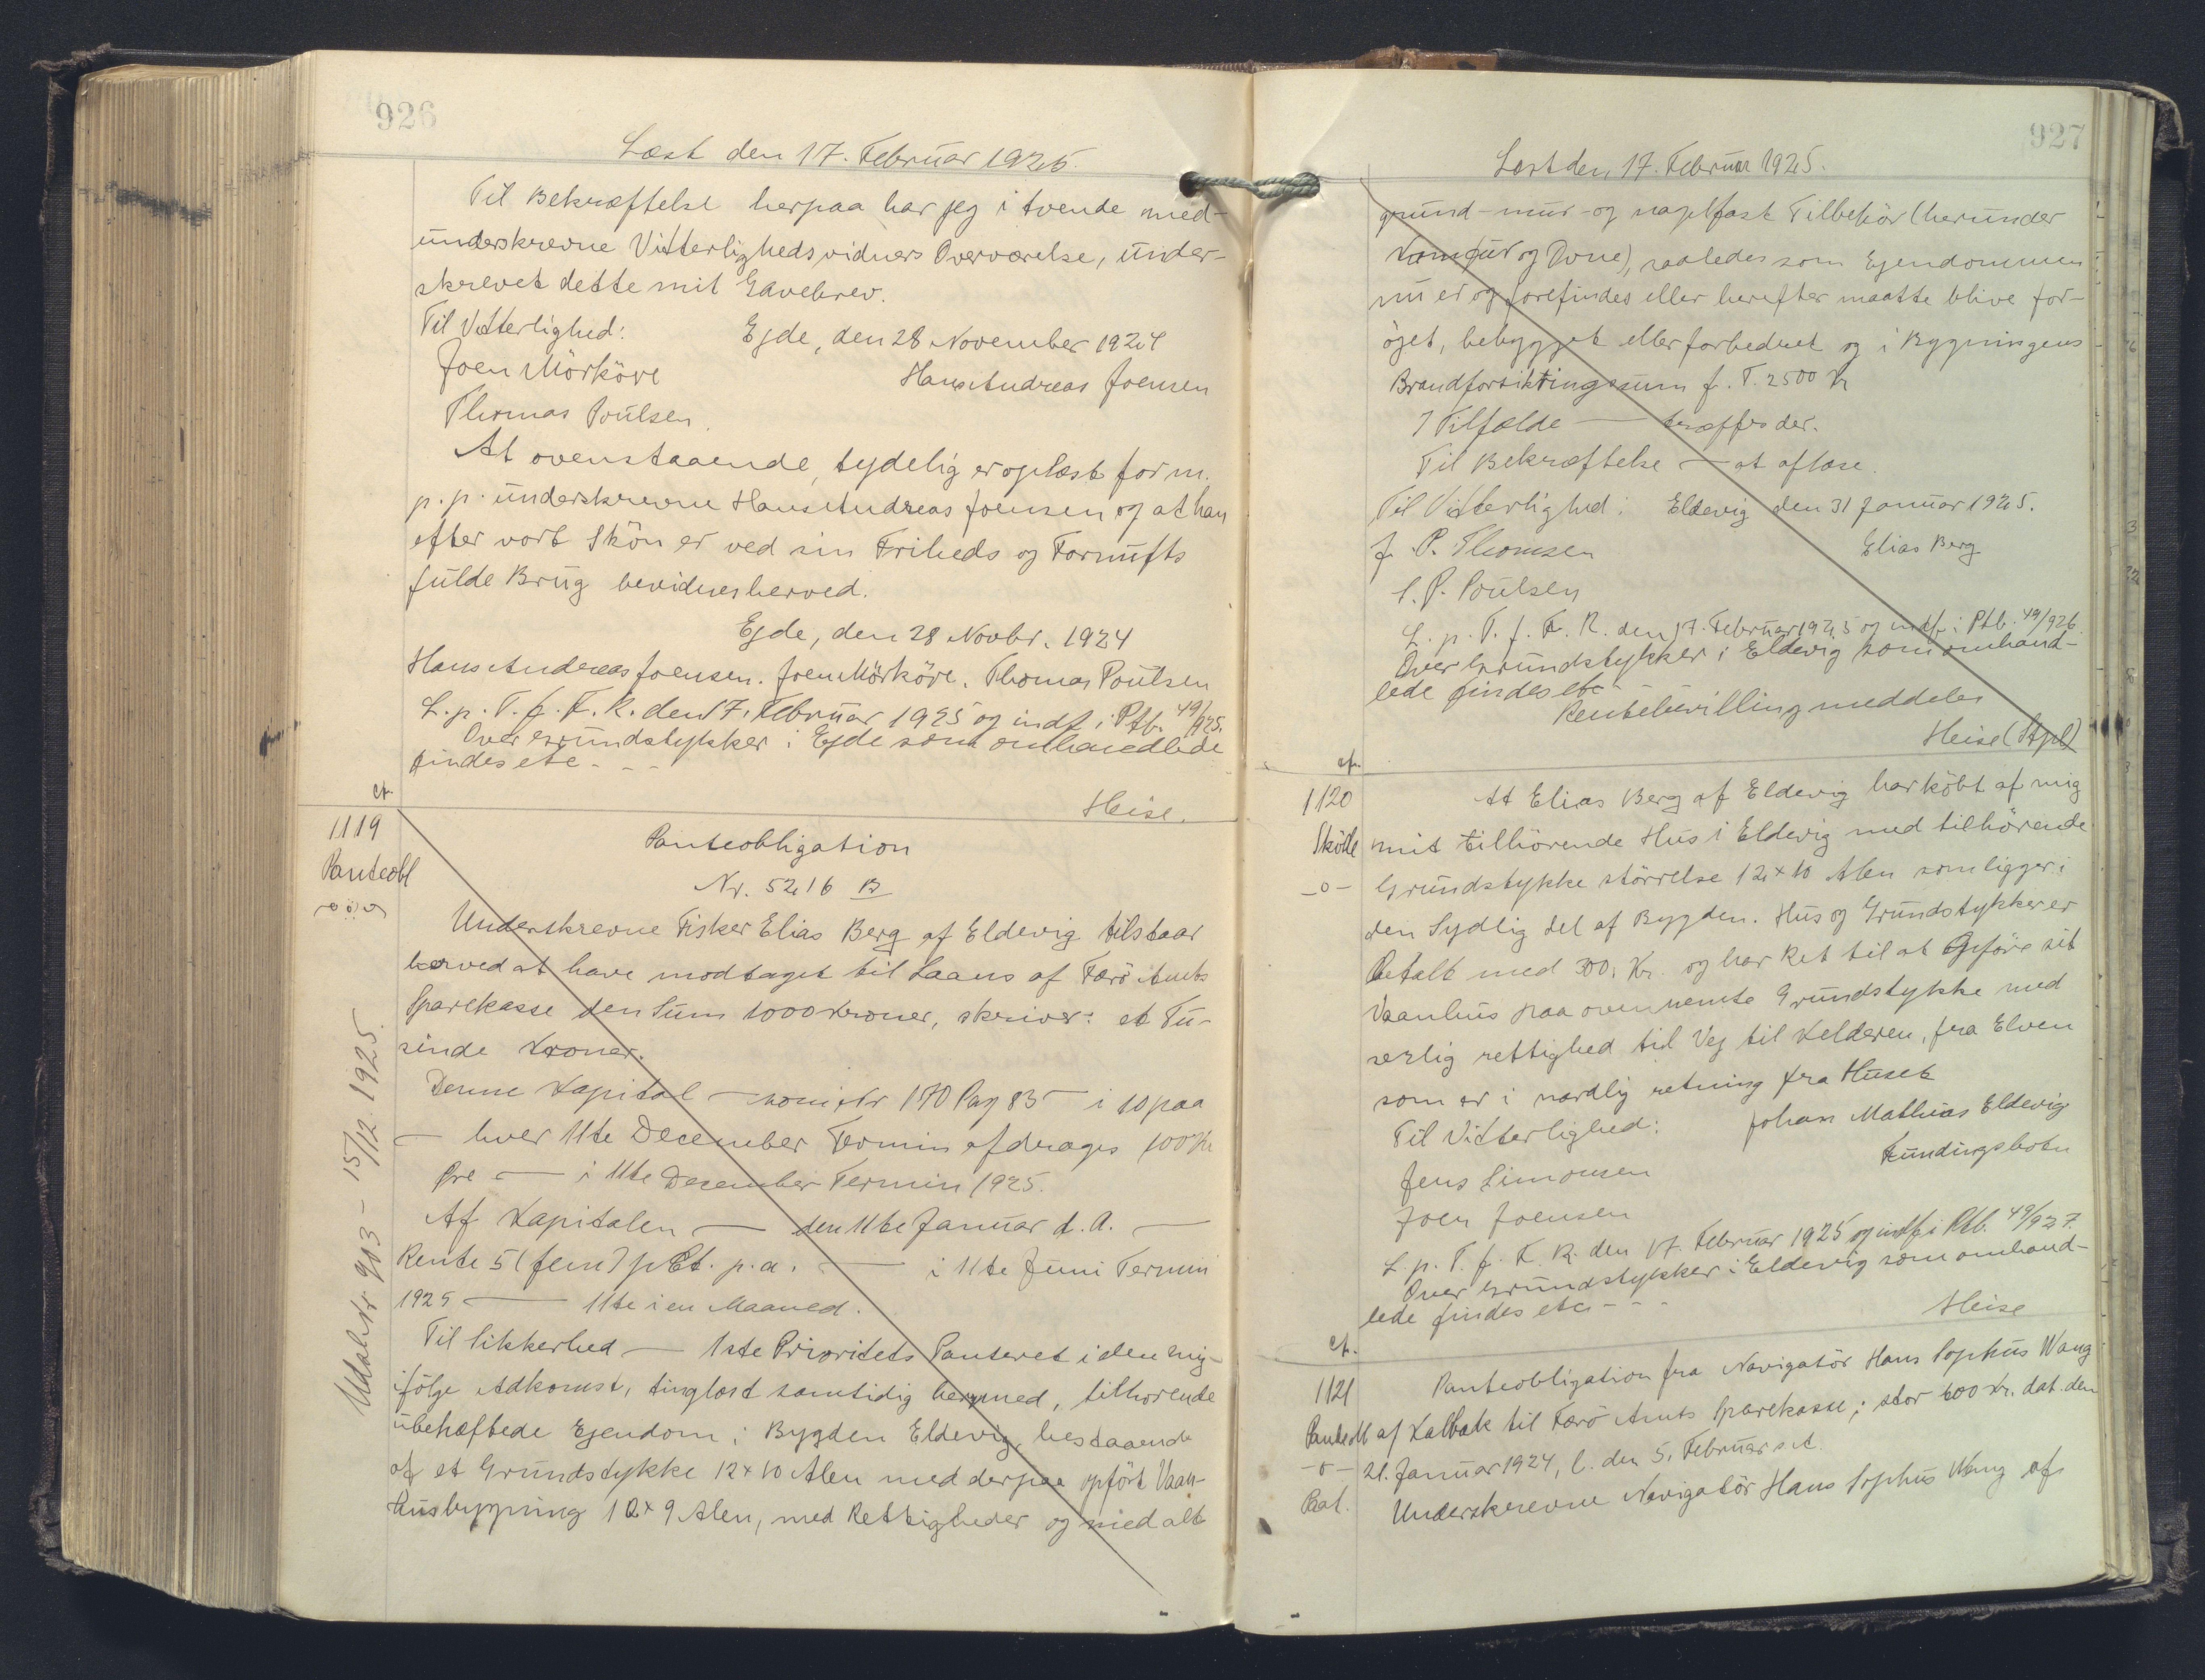 926
Læst den 17. Februar 1925.
Til Bekræftelse herpaa har jeg i tvende med-
underskrevne Vitterlighedsvidners Overværelse, under-
skrevet dette mit Gavebrev.
Til Vitterlighed: Ejde, den 28 November 1924
Joen Mörköre Hans Andreas Joensen
Thomas Poulsen.
At ovenstaaende, tydelig er oplæst for m.
p.p. underskrevne Hans Andreas Joensen og at han
efter vort Skön er ved sin Friheds og Fornufts
fulde Brug bevidnes herved.
Ejde, den 28 Novbr. 1924
Hans Andreas Joensen. Joen Mörköre. Thomas Poulsen
L. p. T. f. F. R. den 17. Februar 1925 og indf. i Ptb. 49/925.
Over Grundstykker i Ejde som omhandlede
findes etc - - -
Heise.
cf.
1119
Panteobl
Panteobligation
Nr. 5216 B
Underskrevne Fisker Elias Berg af Eldevig tilstaar
herved at have modtaget til Laans af Færö Amts
Sparekasse den Sum 1000 Kroner, skriver: et Tu-
sinde Kroner.
Denne Kapital — som Nr 170 Pag 83 — i 10 paa
— hver 11te December Termin afdrages 100 Kr
Øre — i 11te December Termin 1925.
Af Kapitalen — den 11te Januar d. A. —
Rente 5 (fem) pCt. p.a. — i 11te Juni Termin
1925 — 11te i en Maaned.
Til Sikkerhed — 1ste Prioritets Panteret i den mig
ifölge Adkomst, tinglæst samtidig hermed, tilhörende
ubehæftede Ejendom i Bygden Eldevig, bestaaende
af et Grundstykke 12 x 10 Alen med derpaa opfört Vaan-
husbygning 10 x 9 Alen, med Rettigheder og med alt
Udslettet 903 - 15/12 1925.
927
Læst den 17. Februar 1925.
grund- mur- og nagelfast Tilbehör (herunder
Komfur og Ovne), saaledes som Ejendommen
nu er og forefindes eller herefter maatte blive for-
öget, bebygget eller forbedret og i Bygningens
Brandforsikringssum f. T. 2500 Kr
I Tilfælde — træffes der.
Til Bekræftelse — at aflæse.
Til Vitterlighed: Eldevig den 31 Januar 1925.
J. P. Thomsen Elias Berg
S. P. Poulsen
L. p. T. f. F. R. den 17. Februar 1925 og indf. i Ptb. 49/926.
Over Grundstykker i Eldevig som omhand-
lede findes etc -
Rentebevilling meddeles
Heise (Stpl)
cf.
1120
Sköde
-o-
At Elias Berg af Eldevig har köbt af mig
mit tilhörende Hus i Eldevig med tilhörende
Grundstykke störrelse 12 x 10 Alen som ligger i
den Sydlig del af Bygden. Hus og Grundstykker er
Betalt med 300, Kr. og har Ret til at Opföre sit
Vaanhus paa ovennemte Grundstykke med
serlig rettighed til Vej til Kelderen, fra Elven
som er i nordlig retning fra Huset
Til Vitterlighed: Johan Mathias Eldevig
Jens Simonsen Fundingsbotn
Joen Joensen
L. p. T. f. F. R. den 17. Februar 1925 og indf. i Ptb. 49/927.
Over Grundstykker i Eldevig som omhand-
lede findes etc - - -
Heise
cf.
1121
Panteobl
-o-
Panteobligation fra Navigatör Hans Sophus Wang
af Kalbak til Færö Amts Sparekasse; stor 600 Kr. dat. den
21. Januar 1924, l. den 5. Februar s.A.
Underskrevne Navigatör Hans Sophus Wang af